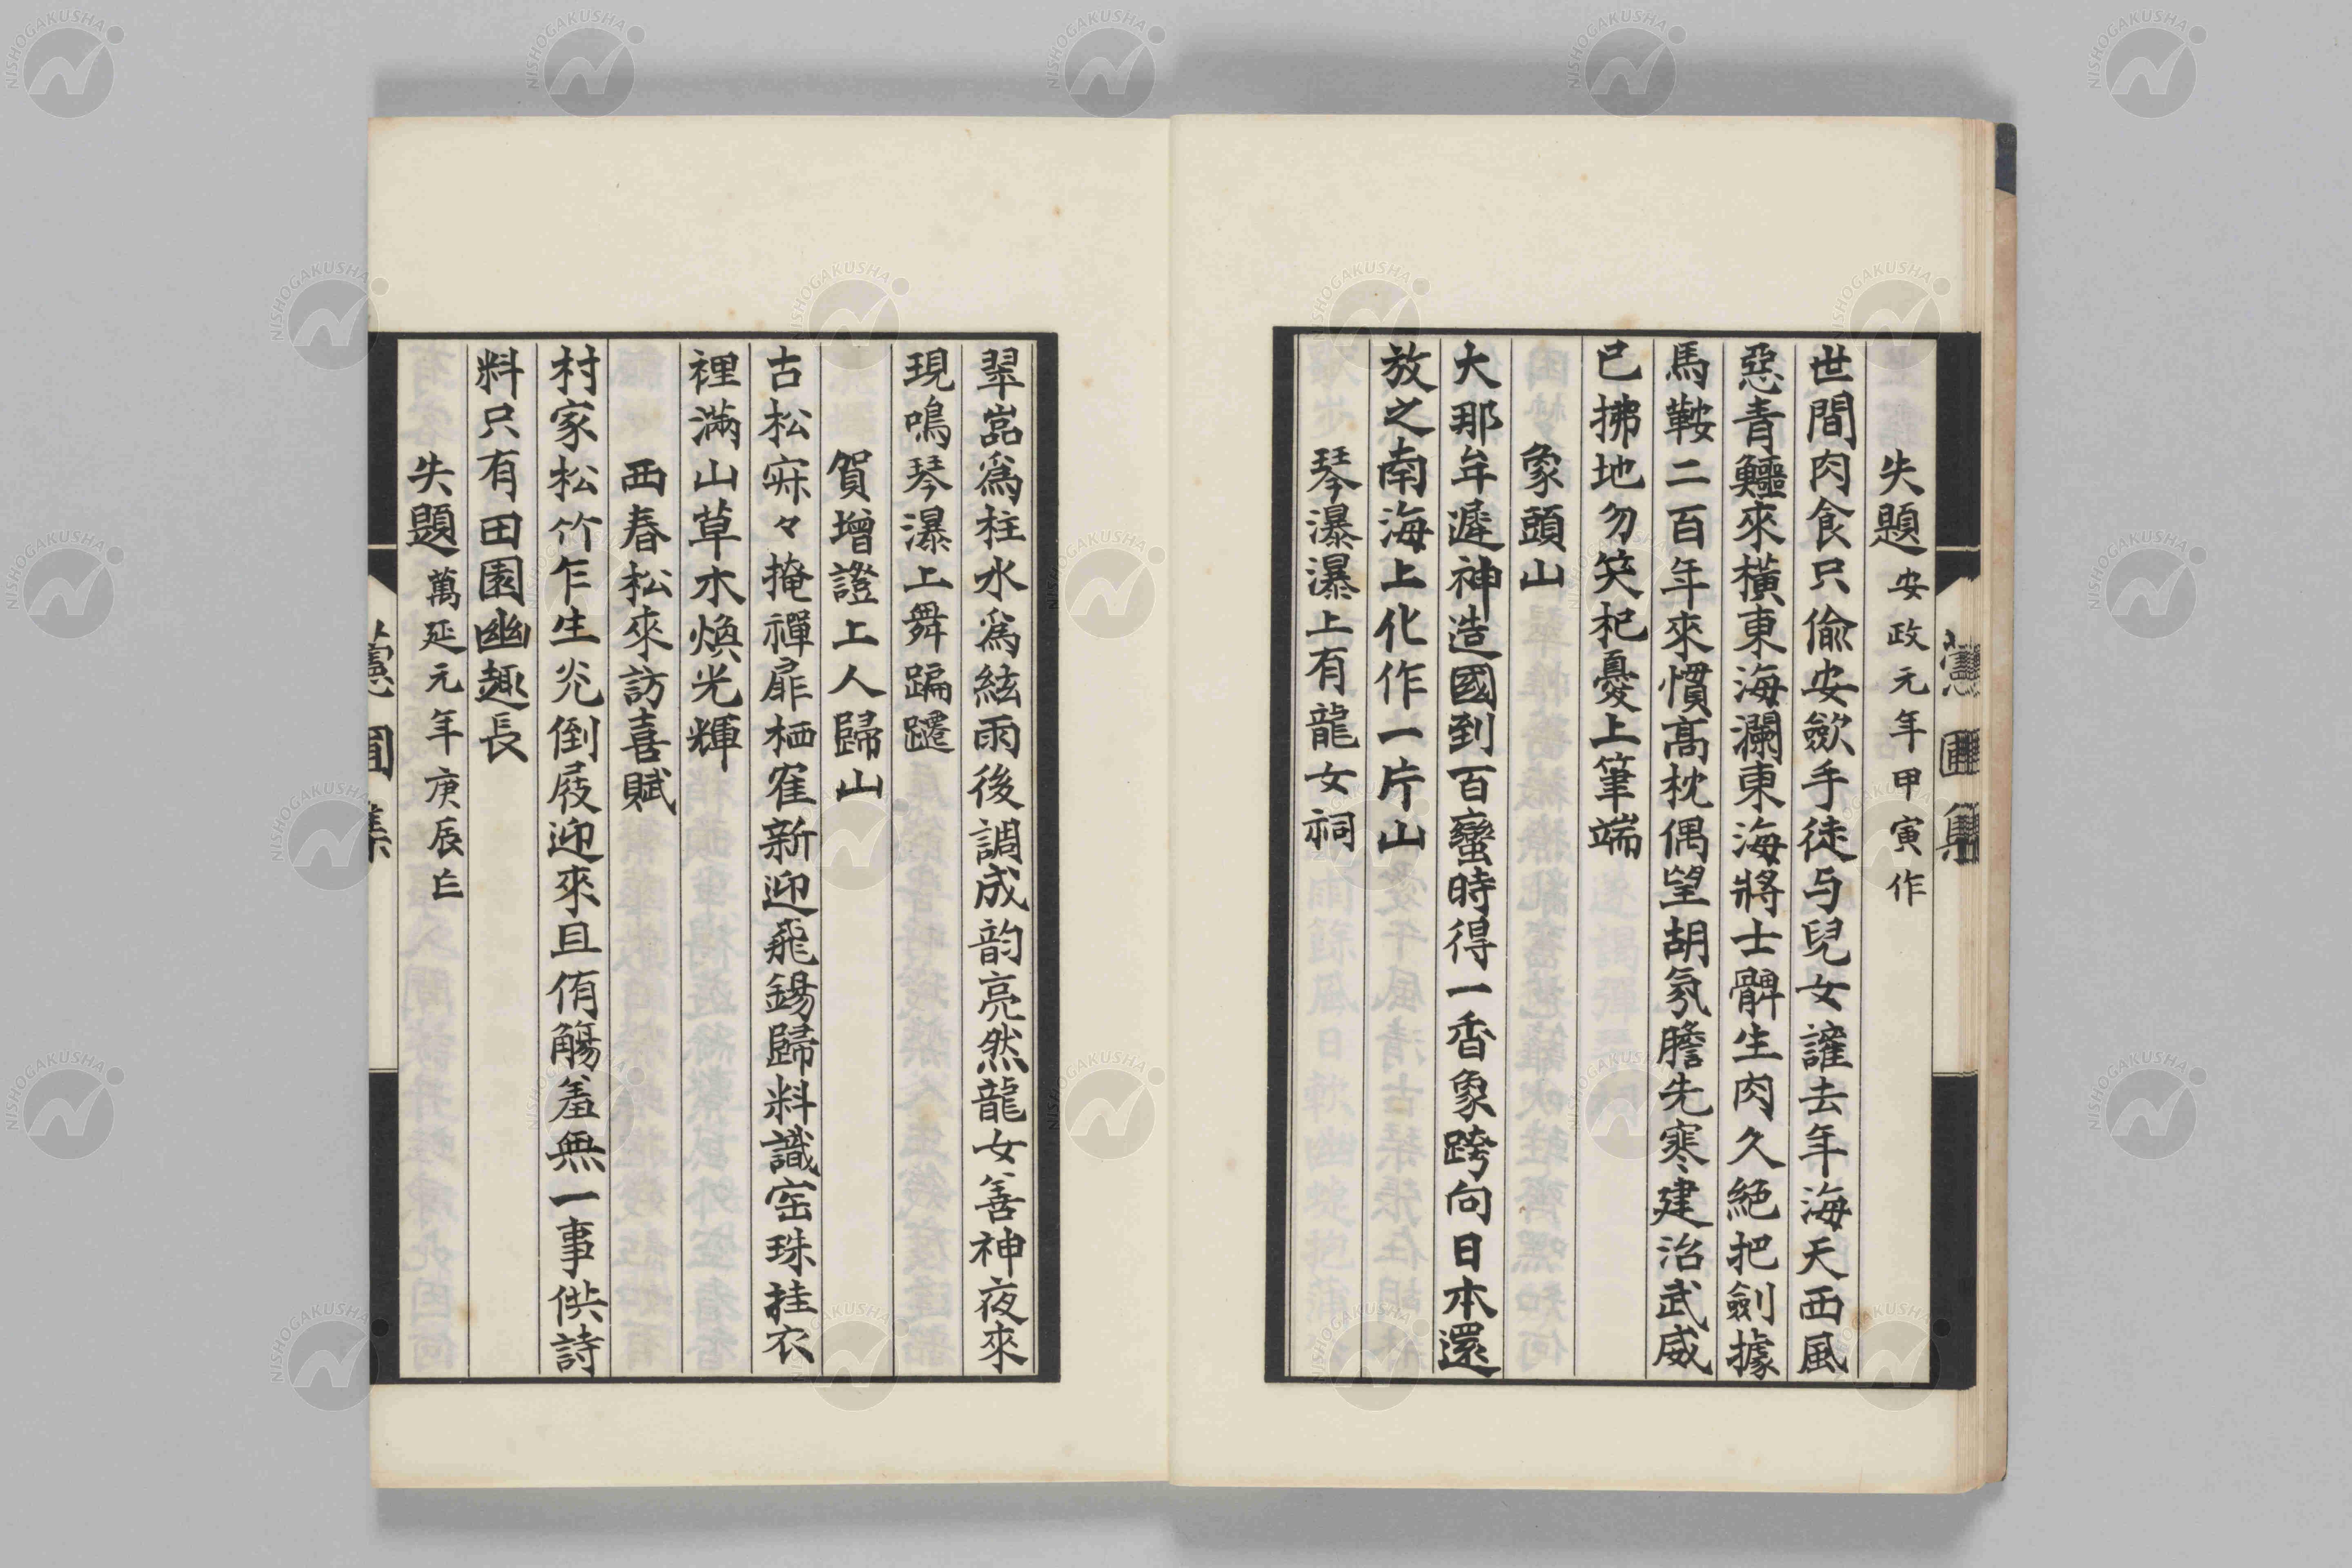 失題 安政元年甲寅作
世間肉食只偸安歛手徒与兒女謹去年海天西風
惡青鱷來橫東海瀾東海將士髀生肉久絕把劍據
馬鞍二百年來慣高枕偶望胡氛膽先寒建治武威
已拂地勿笑杞憂上筆端
象頭山
大那牟遲神造國到百蠻時得一香象跨向日本還
放之南海上化作一片山
琴瀑瀑上有龍女祠
翠嵓爲柱水爲絃雨後調成韵亮然龍女善神夜來
現鳴琴瀑上舞蹁躚
賀增證上人歸山
古松寂々掩禪扉栖寉新迎飛錫歸料識宻珠挂衣
裡滿山草木煥光輝
西春松來訪喜賦
村家松竹乍生光倒屐迎來且侑觴羞無一事供詩
料只有田園幽趣長
失題 萬延元年庚辰亡
圃集
NISHOGAKUSHA